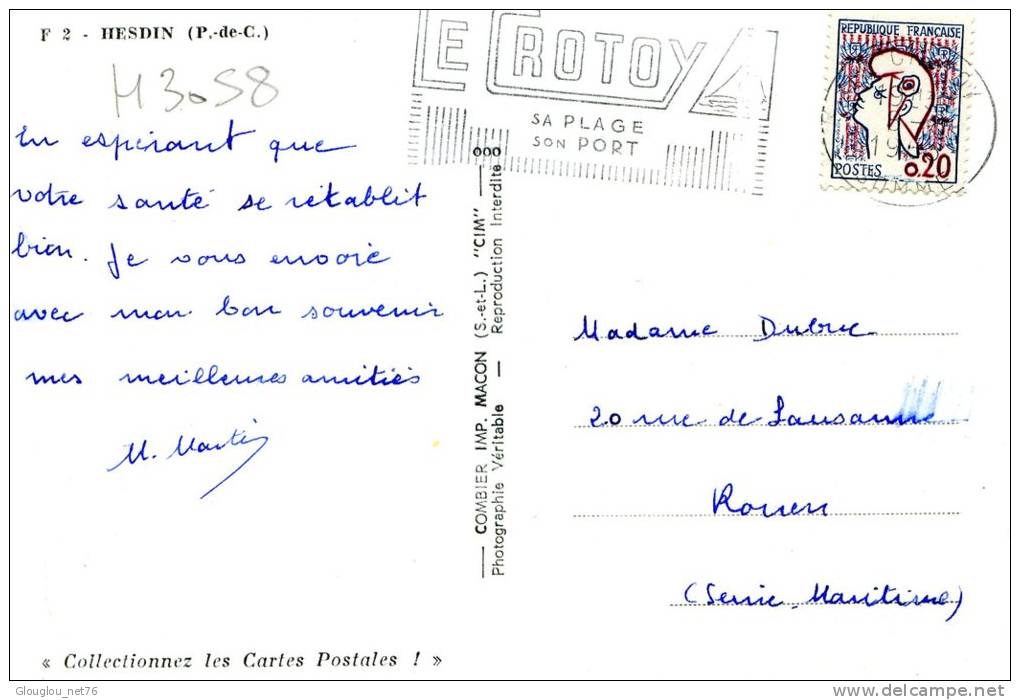 F 2 - HESDIN (P.-de-C.)
H3058
En espérant que
votre santé se rétablit
bien. Je vous envoie
avec mon bon souvenir
mes meilleures amitiés
M. Martin
LE CROTOY
SA PLAGE
SON PORT
REPUBLIQUE FRANÇAISE
POSTES 0.20
SOMME
COMBIER IMP. MACON (S.-et-L.) "CIM"
Photographie Véritable — Reproduction Interdite
Madame Dubuc
20 rue de Lausanne
Rouen
(Seine-Maritime)
« Collectionnez les Cartes Postales ! »
Glouglou_net76
www.delcampe.net